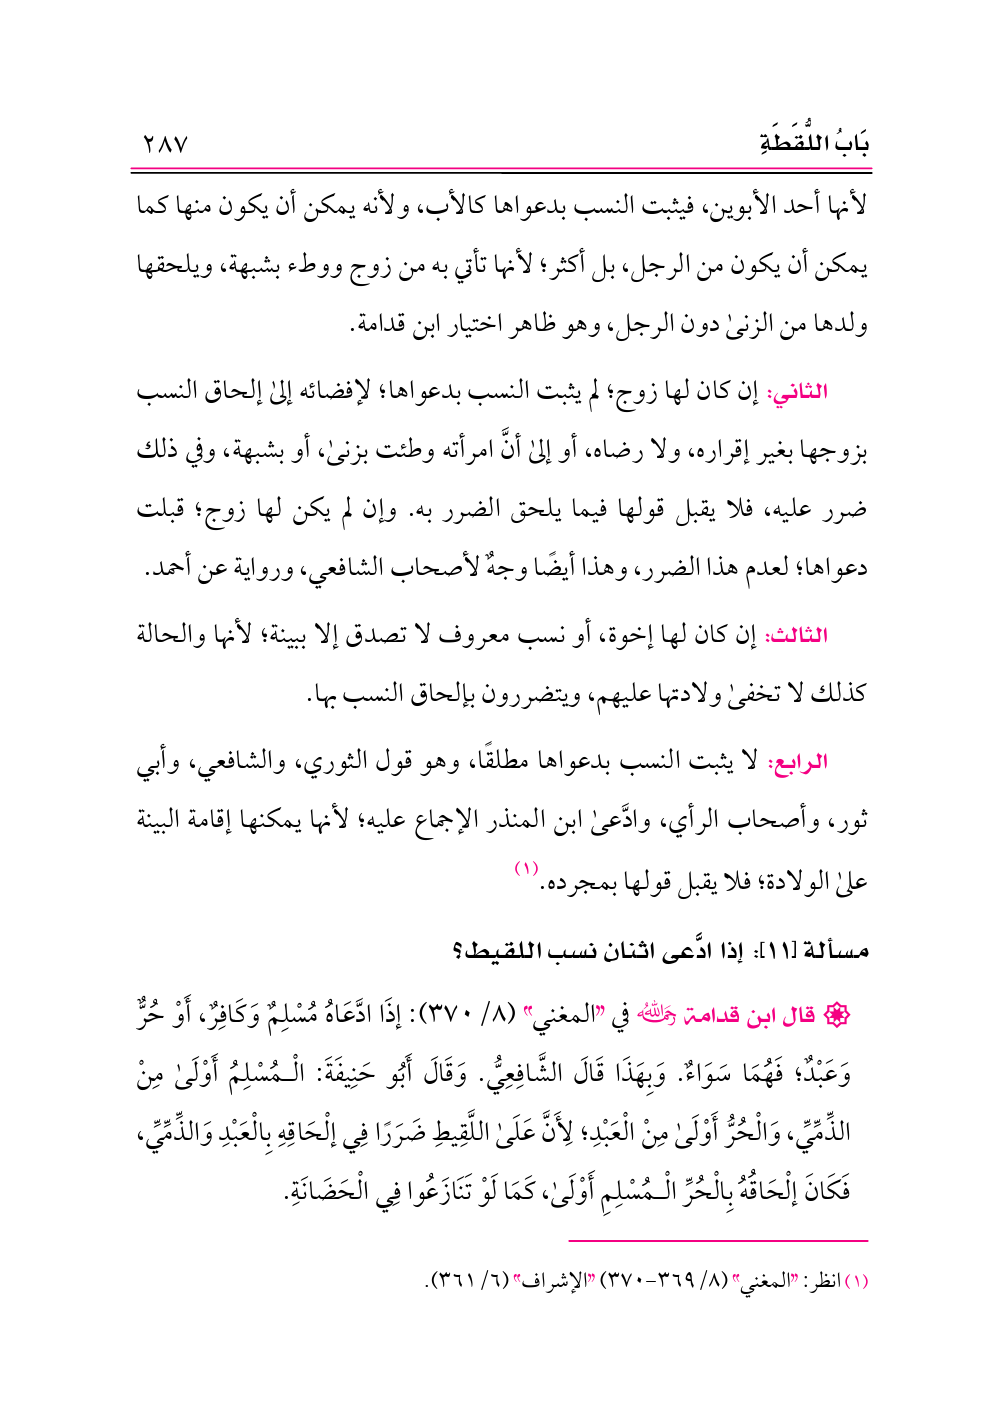 بَابُ اللُّقَطَةِ ٢٨٧
لأنها أحد الأبوين، فيثبت النسب بدعواها كالأب، ولأنه يمكن أن يكون منها كما
يمكن أن يكون من الرجل، بل أكثر؛ لأنها تأتي به من زوج ووطء بشبهة، ويلحقها
ولدها من الزنىٰ دون الرجل، وهو ظاهر اختيار ابن قدامة.
الثاني: إن كان لها زوج؛ لم يثبت النسب بدعواها؛ لإفضائه إلىٰ إلحاق النسب
بزوجها بغير إقراره، ولا رضاه، أو إلىٰ أنَّ امرأته وطئت بزنىٰ، أو بشبهة، وفي ذلك
ضرر عليه، فلا يقبل قولها فيما يلحق الضرر به. وإن لم يكن لها زوج؛ قبلت
دعواها؛ لعدم هذا الضرر، وهذا أيضًا وجهٌ لأصحاب الشافعي، ورواية عن أحمد.
الثالث: إن كان لها إخوة، أو نسب معروف لا تصدق إلا ببينة؛ لأنها والحالة
كذلك لا تخفىٰ ولادتها عليهم، ويتضررون بإلحاق النسب بها.
الرابع: لا يثبت النسب بدعواها مطلقًا، وهو قول الثوري، والشافعي، وأبي
ثور، وأصحاب الرأي، وادَّعىٰ ابن المنذر الإجماع عليه؛ لأنها يمكنها إقامة البينة
علىٰ الولادة؛ فلا يقبل قولها بمجرده.(١)
مسألة [١١]: إذا ادَّعى اثنان نسب اللقيط؟
قال ابن قدامة رحمه الله في "المغني" (٨/ ٣٧٠): إِذَا ادَّعَاهُ مُسْلِمٌ وَكَافِرٌ، أَوْ حُرٌّ
وَعَبْدٌ؛ فَهُمَا سَوَاءٌ. وَبِهَذَا قَالَ الشَّافِعِيُّ. وَقَالَ أَبُو حَنِيفَةَ: الْـمُسْلِمُ أَوْلَىٰ مِنْ
الذِّمِّيِّ، وَالْحُرُّ أَوْلَىٰ مِنْ الْعَبْدِ؛ لِأَنَّ عَلَىٰ اللَّقِيطِ ضَرَرًا فِي إلْحَاقِهِ بِالْعَبْدِ وَالذِّمِّيِّ،
فَكَانَ إلْحَاقُهُ بِالْحُرِّ الْـمُسْلِمِ أَوْلَىٰ، كَمَا لَوْ تَنَازَعُوا فِي الْحَضَانَةِ.
(١) انظر: "المغني" (٨/ ٣٦٩-٣٧٠) "الإشراف" (٦/ ٣٦١).